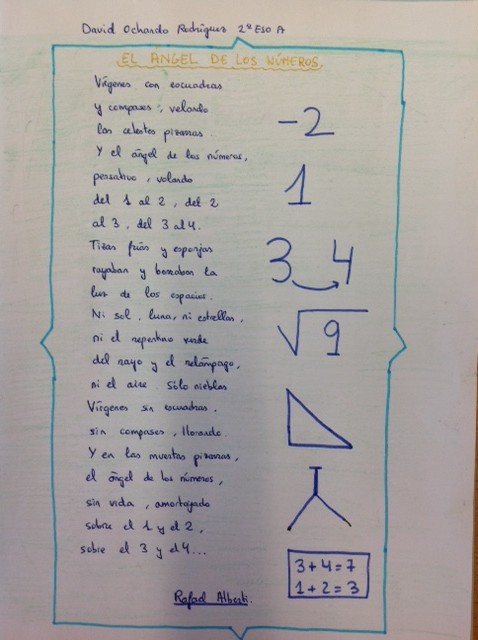 David Ochando Rodríguez 2º ESO A
EL ANGEL DE LOS NÚMEROS.
Vírgenes con escuadras
y compases, velando
las celestes pizarras.
Y el ángel de los números,
pensativo, volando
del 1 al 2, del 2
al 3, del 3 al 4.
Tizas frías y esponjas
rayaban y borraban la
luz de los espacios.
Ni sol, luna, ni estrellas,
ni el repentino verde
del rayo y el relámpago,
ni el aire. Sólo nieblas
Vírgenes sin escuadras,
sin compases, llorando.
Y en las muertas pizarras,
el ángel de los números,
sin vida, amortajado
sobre el 1 y el 2,
sobre el 3 y el 4...
Rafael Alberti.
-2
1
3 4
√9
3+4=7
1+2=3